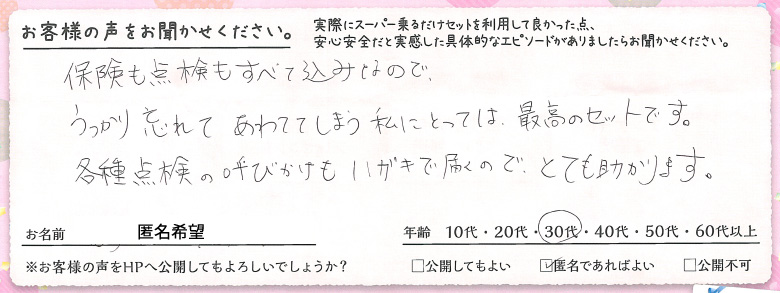 お客様の声をお聞かせください。
実際にスーパー乗るだけセットを利用して良かった点、
安心安全だと実感した具体的なエピソードがありましたらお聞かせください。
保険も点検もすべて込みなので、
うっかり忘れて あわててしまう 私にとっては、最高のセットです。
各種点検の呼びかけも ハガキで届くので、とても助かります。
お名前 匿名希望
年齢 10代・20代・30代・40代・50代・60代以上
※お客様の声をHPへ公開してもよろしいでしょうか？ □公開してもよい ☑匿名であればよい □公開不可